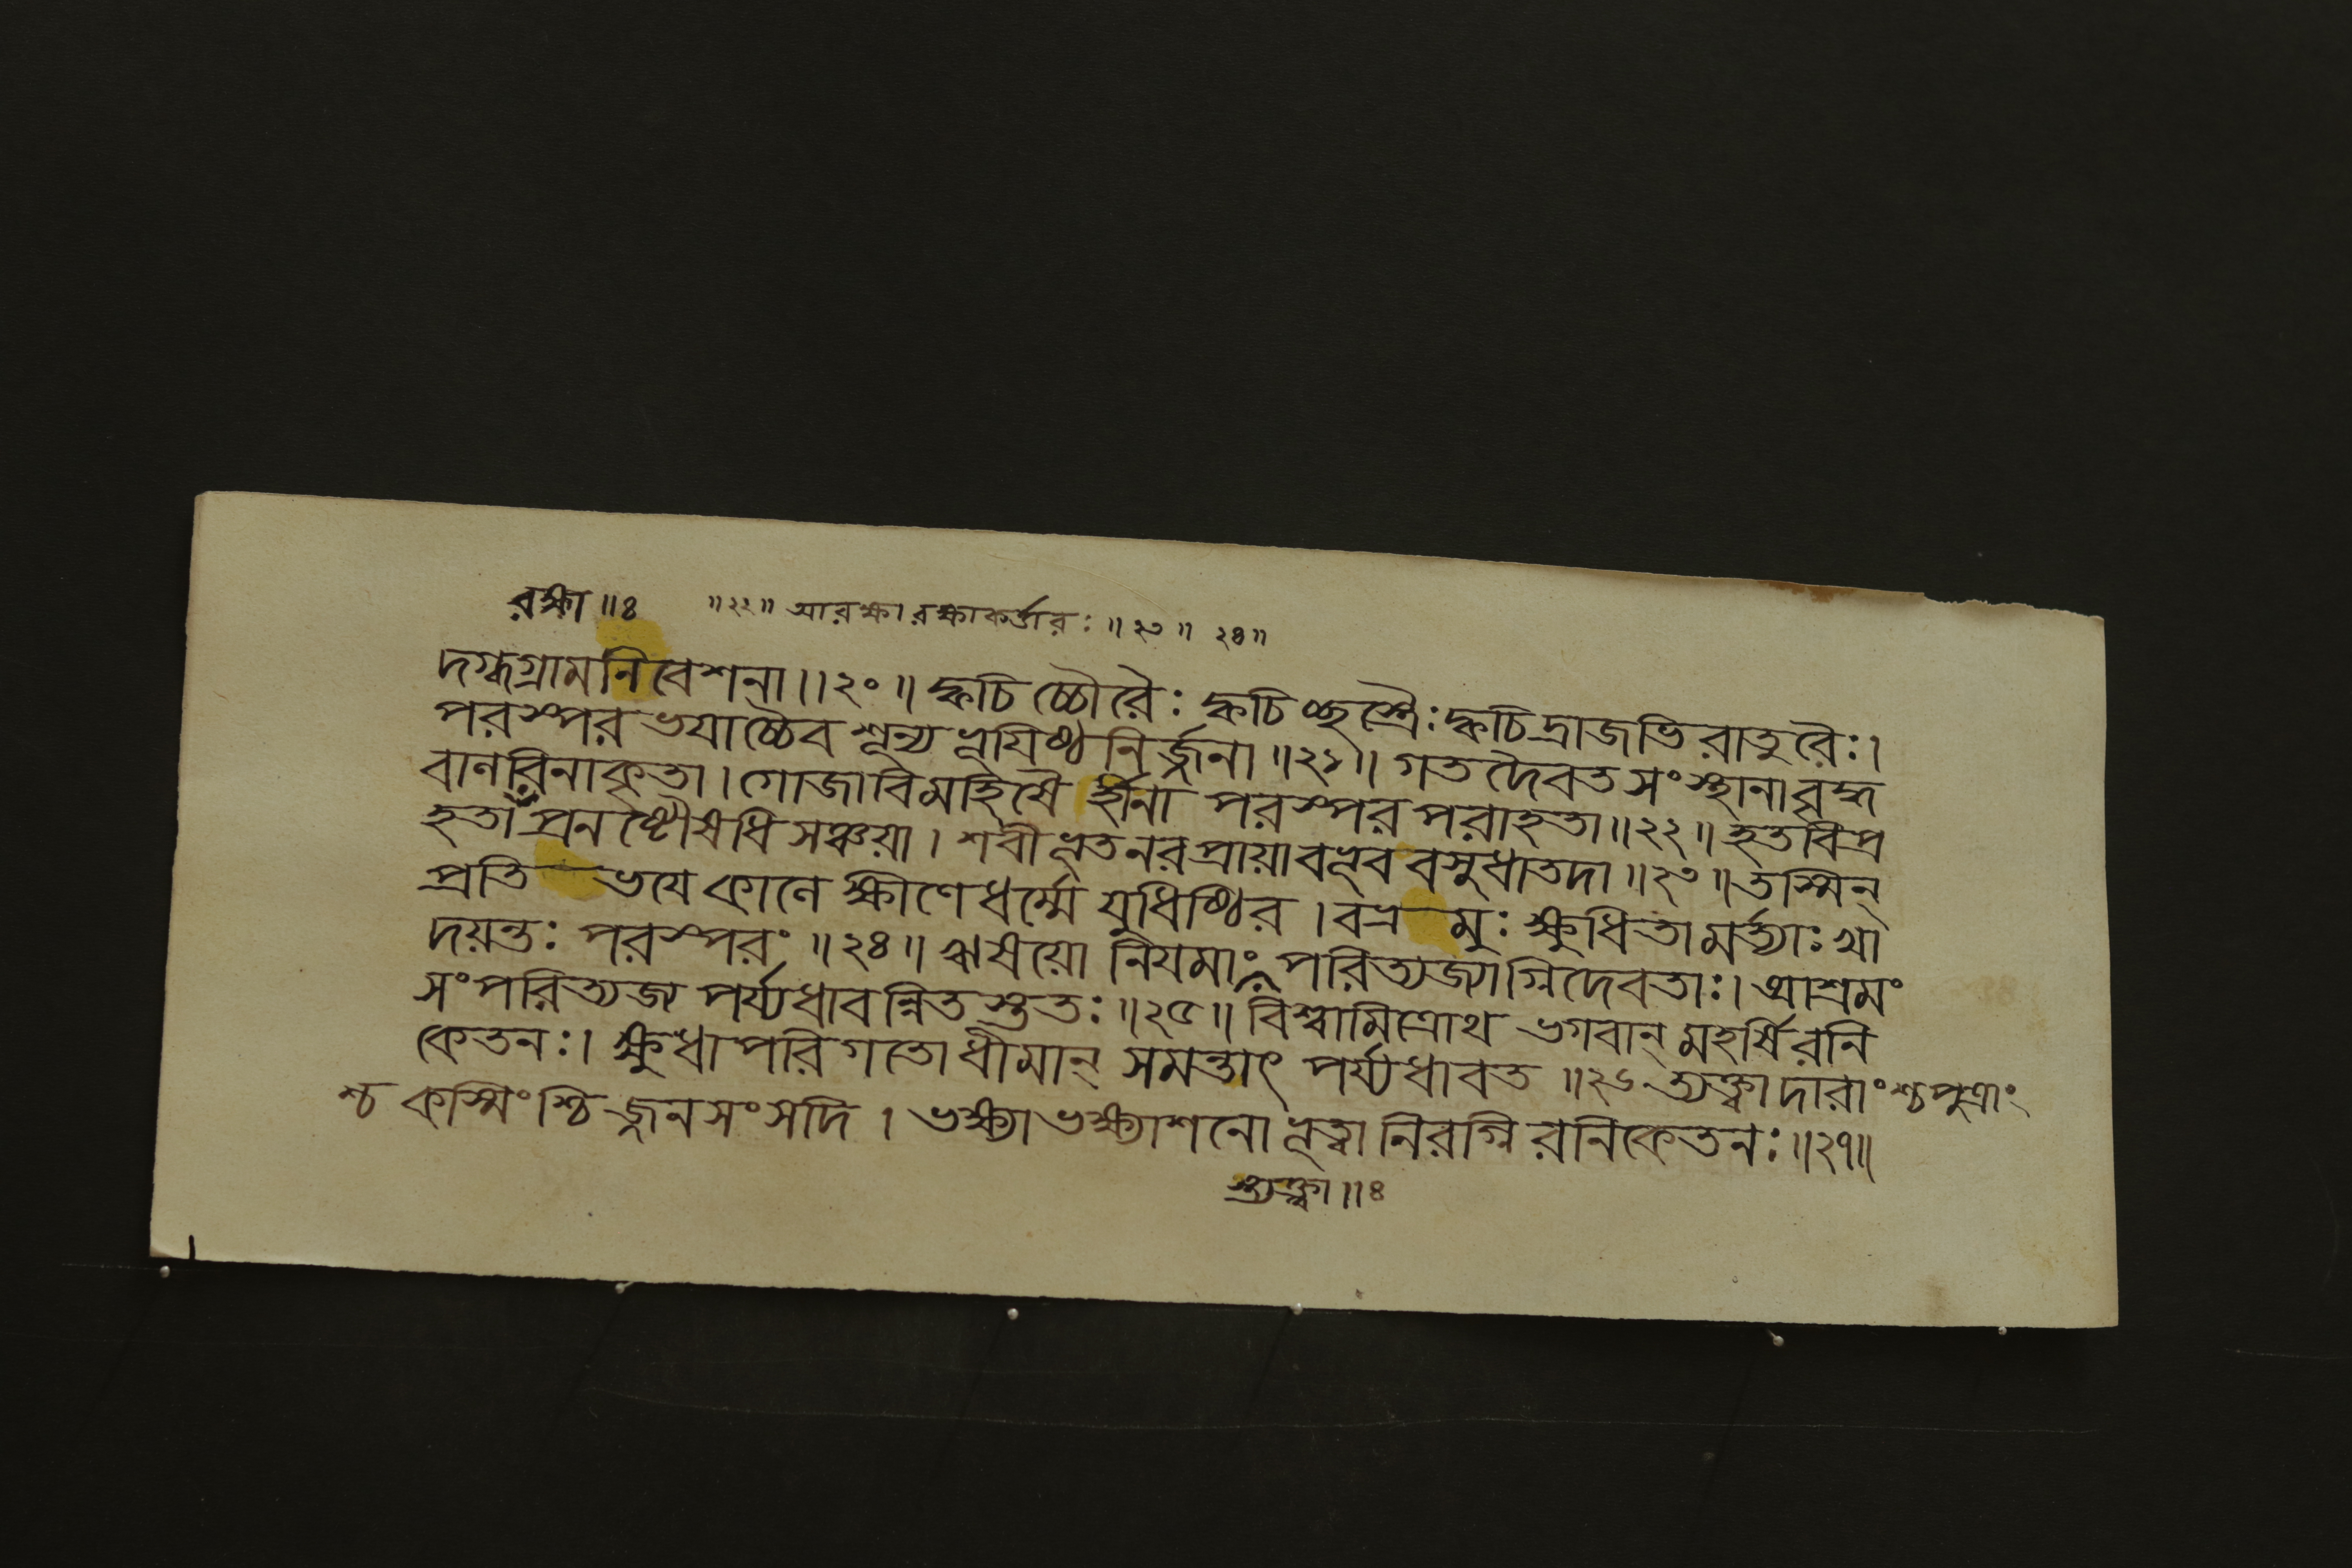 রক্ষা ॥ ৪ ॥ ২২ ॥ আরক্ষা রক্ষাকর্ত্তারঃ ॥ ২৩ ॥ ২৪ ॥
দগ্ধগ্রামনিবেশনা ॥ ২০ ॥ ক্বচিচ্চৌরৈঃ ক্বচিচ্ছস্ত্রৈঃ ক্বচিদ্রাজভিরাতুরৈঃ ।
পরস্পরভযাচ্চৈব শূন্যভূযিষ্ঠনির্জ্জনা ॥ ২১ ॥ গতদৈবতসংস্থানা বৃদ্ধ
বালবিনাকৃতা । গোজাবিমহিষৈর্হীনা পরস্পরপরাহতা ॥ ২২ ॥ হতবিপ্র
হতা প্রনষ্টৌষধিসঞ্চয়া । শবীভূতনরপ্রায়া বভূব বসুধা তদা ॥ ২৩ ॥ তস্মিন্
প্রতিভযে কালে ক্ষীণে ধর্ম্মে যুধিষ্ঠির । বভ্রমুঃ ক্ষুধিতা মর্ত্ত্যাঃ খা
দয়ন্তঃ পরস্পরং ॥ ২৪ ॥ ঋষয়ো নিযমাং পরিত্যজ্যাগ্নিদেবতাঃ । আশ্রমং
সংপরিত্যজ্য পর্য্যধাবন্নিতস্ততঃ ॥ ২৫ ॥ বিশ্বামিত্রোথ ভগবান্ মহর্ষিরনি
কেতনঃ । ক্ষুধাপরিগতো ধীমান্ সমন্তাৎ পর্য্যধাবত ॥ ২৬ ত্যক্ত্বা দারাংশ্চ পুত্রাং
শ্চ কস্মিংশ্চিজ্জনসংসদি । ভক্ষ্যাভক্ষ্যাশনো ভূত্বা নিরগ্নিরনিকেতনঃ ॥ ২৭ ॥
ত্যক্ত্বা ॥ ৪